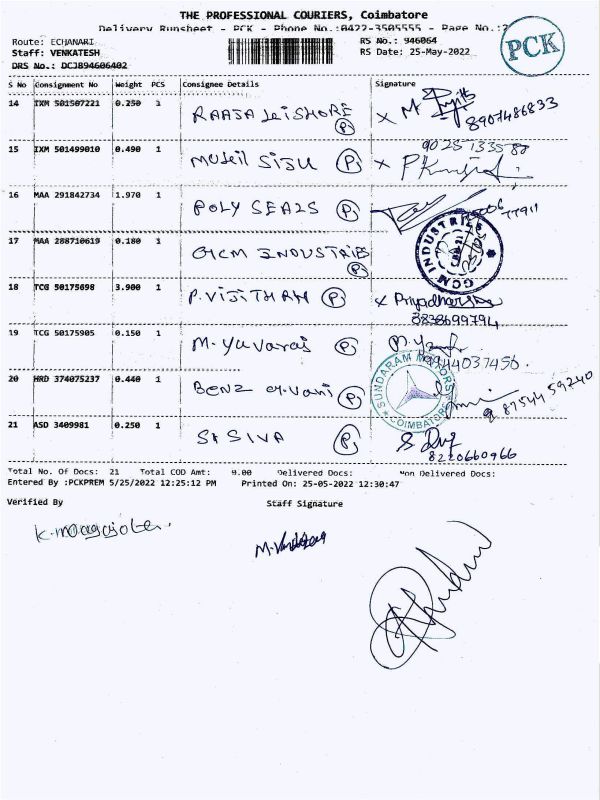 THE PROFESSIONAL COURIERS, Coimbatore
Delivery Runsheet - PCK - Phone No.:0422-3505555 - Page No.:
PCK
Route: ECHANARI
RS No.: 946064
Staff: VENKATESH
RS Date: 25-May-2022
DRS No.: DCJ894606402
S No Consignment No Weight PCS Consignee Details Signature
14 IXM 501507221 0.250 1 RAAJA KISHORE P
8907486833
15 IXM 501499010 0.490 1 SIJU P
16 MAA 291842734 1.970 1 POLY SEALS P
77911
17 MAA 288710619 0.180 1 GCM INDUSTRIES P
GCM INDUSTRIES
18 TCG 50175698 3.900 1 P. VIJITHRA P Priyadharshini
8838699794
19 TCG 50175905 0.150 1 M. Yuvaraj P
9944037456
20 HRD 374075237 0.440 1 BENZ P
SUNDARAM MOTORS
COIMBATORE
87544 59240
21 ASD 3409981 0.250 1 SIVA P
8220660966
Total No. Of Docs: 21 Total COD Amt: 0.00 Delivered Docs: Non Delivered Docs:
Entered By :PCKPREM 5/25/2022 12:25:12 PM Printed On: 25-05-2022 12:30:47
Verified By Staff Signature